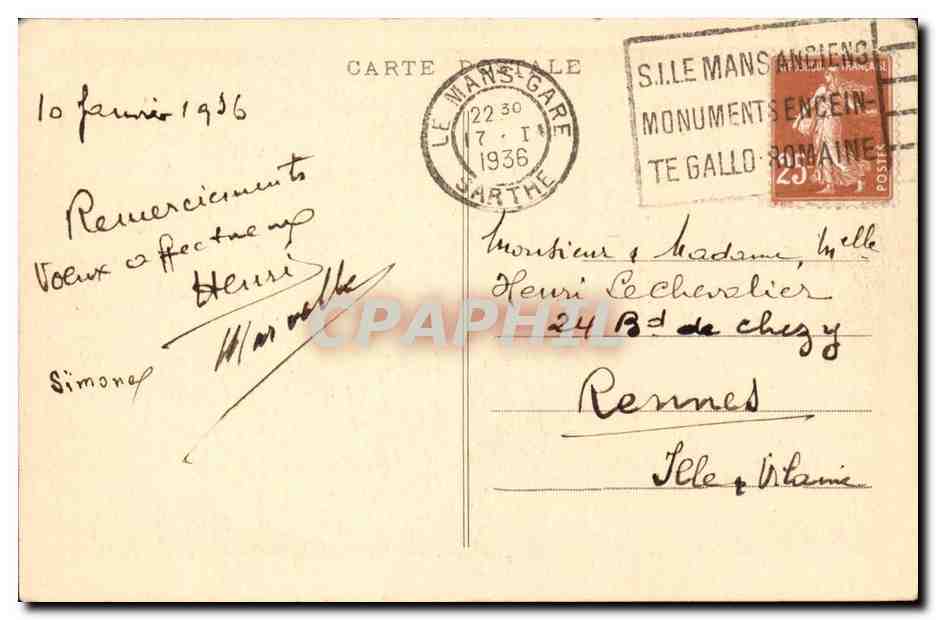 CARTE POSTALE
LE MANS-GARE
22 30
17 · I
1936
SARTHE
S.I. LE MANS ANCIENS
MONUMENTS ENCEIN-
TE GALLO-ROMAINE
FRANÇAISE
25
POSTES
10 Janvier 1936
Remerciements
Voeux affectueux
Henri
Marcelle
Simone
Monsieur & Madame, Melle
Henri Lechevalier
24 Bd de Chezy
Rennes
Ille & Vilaine
CPAPHIL